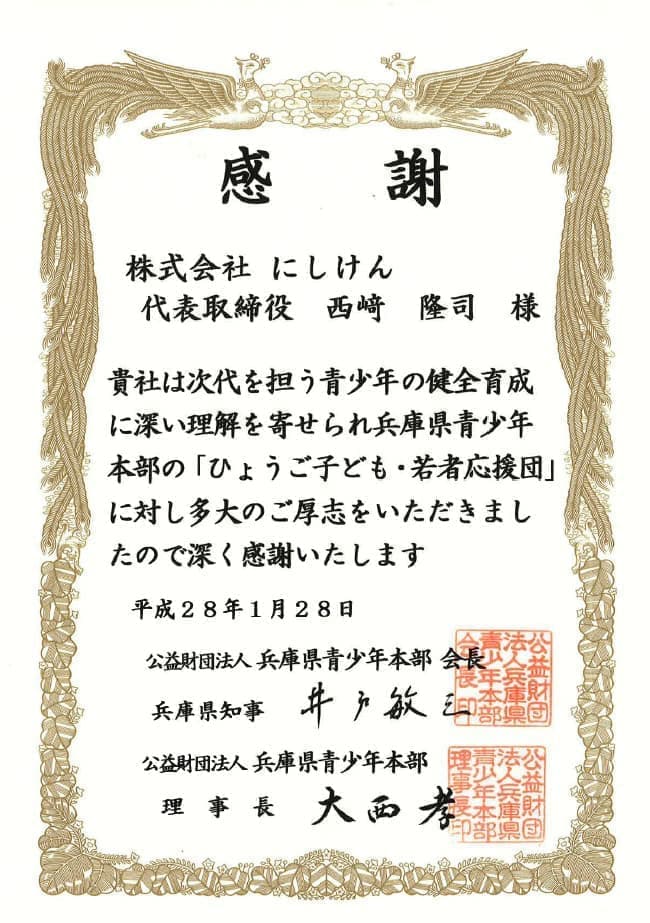 感謝
株式会社 にしけん
代表取締役 西﨑 隆司 様
貴社は次代を担う青少年の健全育成
に深い理解を寄せられ兵庫県青少年
本部の「ひょうご子ども・若者応援団」
に対し多大のご厚志をいただきまし
たので深く感謝いたします
平成28年1月28日
公益財団法人 兵庫県青少年本部 会長
兵庫県知事 井戸敏三
公益財団法人 兵庫県青少年本部
理事長 大西孝
公益財団
法人兵庫県
青少年本部
会長印
公益財団
法人兵庫県
青少年本部
理事長印